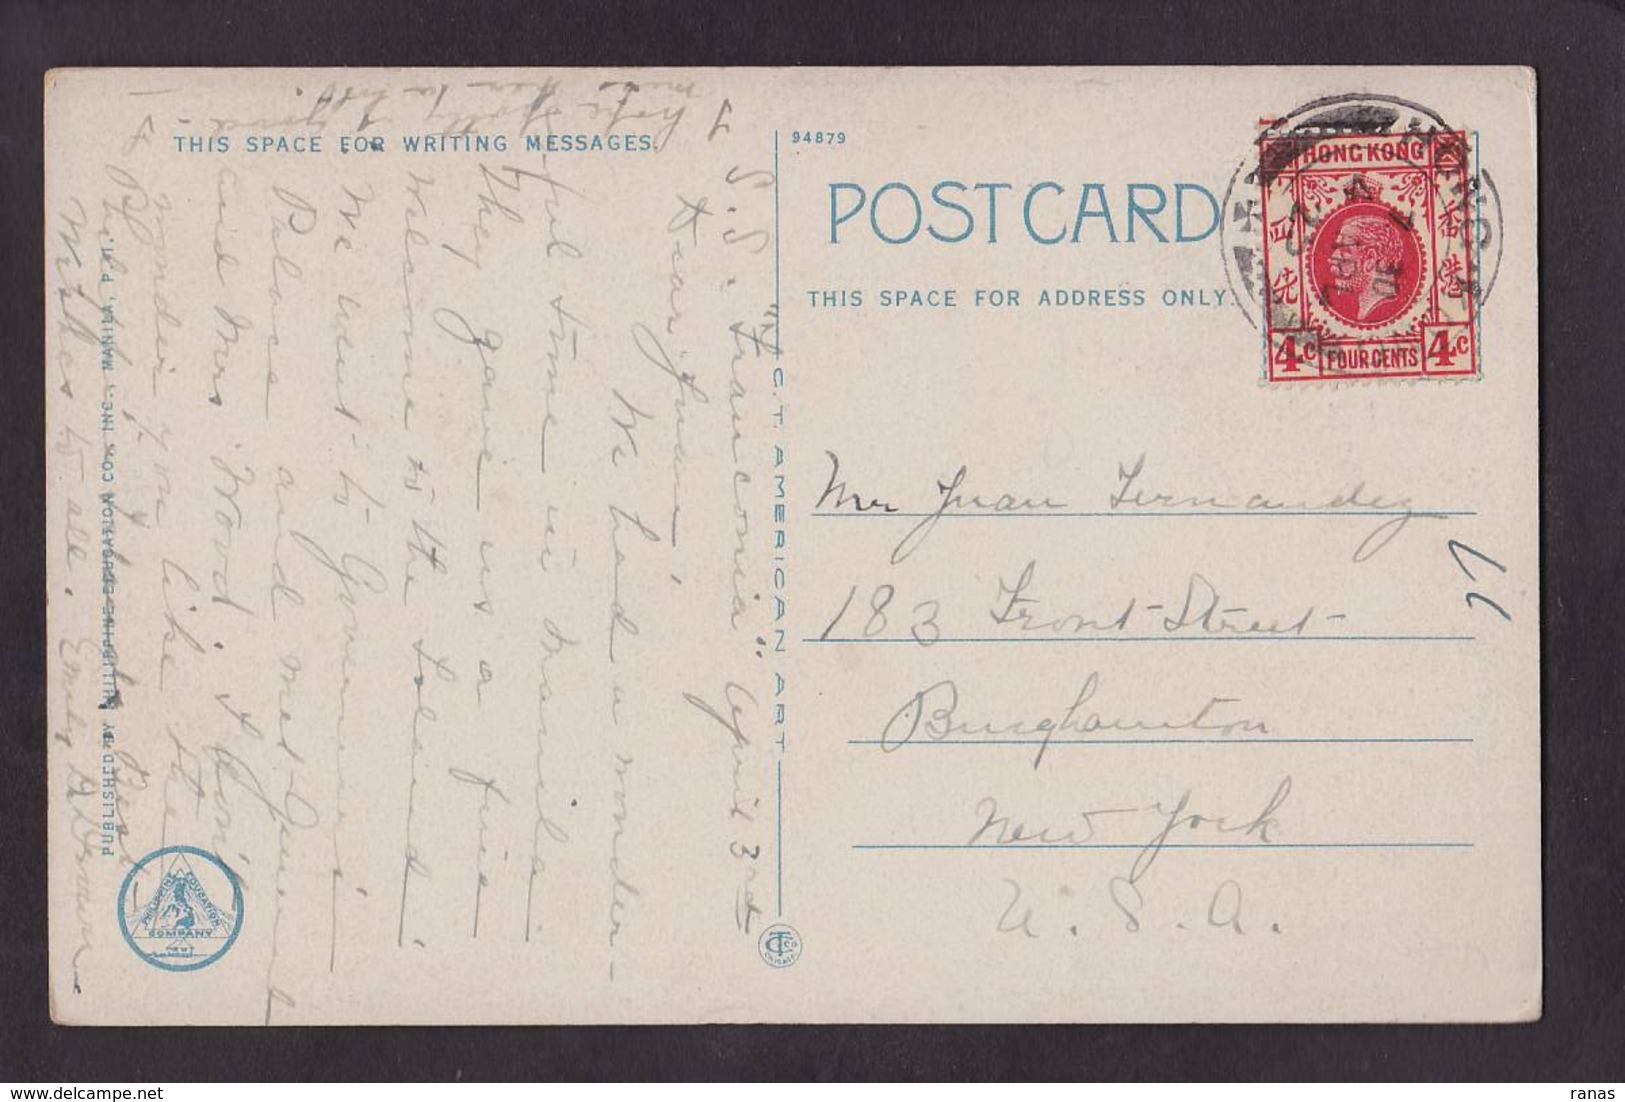 THIS SPACE FOR WRITING MESSAGES.
94879
POST CARD
THIS SPACE FOR ADDRESS ONLY.
HONG KONG
香港
四先
4c FOUR CENTS 4c
HONG
S.S. "Franconia" April 3rd
Dear Juan,
We had a wonder-
ful time in Manila
They gave us a fine
Welcome to the Island.
We went to Governor's
Palace and met General
and Mrs Wood. I don't
wonder you like the
Best
Wishes to all. Emily A Brown
hope
C.T. AMERICAN ART
PUBLISHED BY PHILIPPINE EDUCATION CO., INC., MANILA, P. I.
PHILIPPINE EDUCATION COMPANY
CTCo CHICAGO
Mr Juan Fernandez
183 Front Street
Binghamton
New York
U. S. A.
ranas